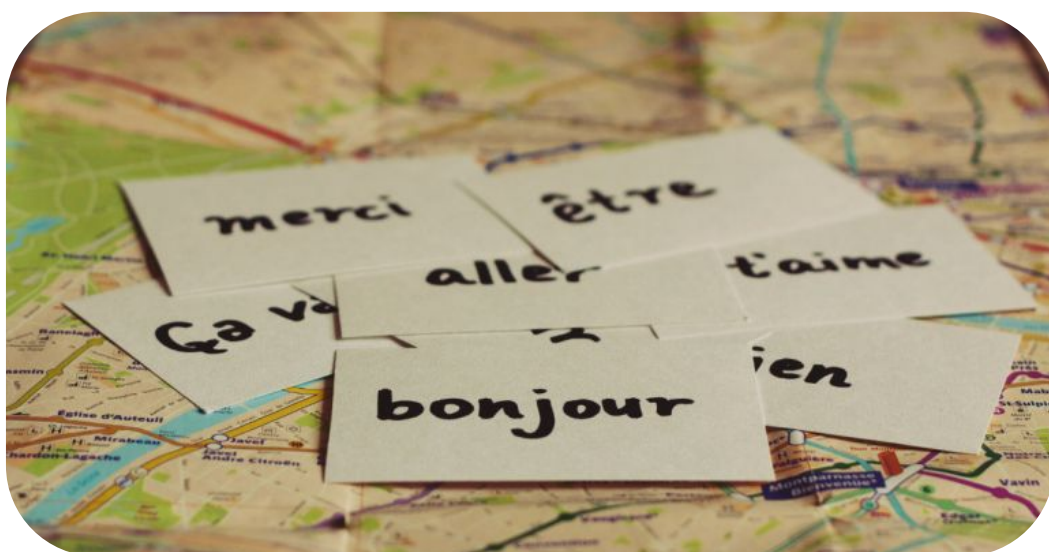 merci
être
aller
t'aime
Ça va
ien
bonjour
Église d'Auteuil
Mirabeau
Javel
Javel
André Citroën
Chardon-Lagache
Montparnasse
Bienvenue
Vavin